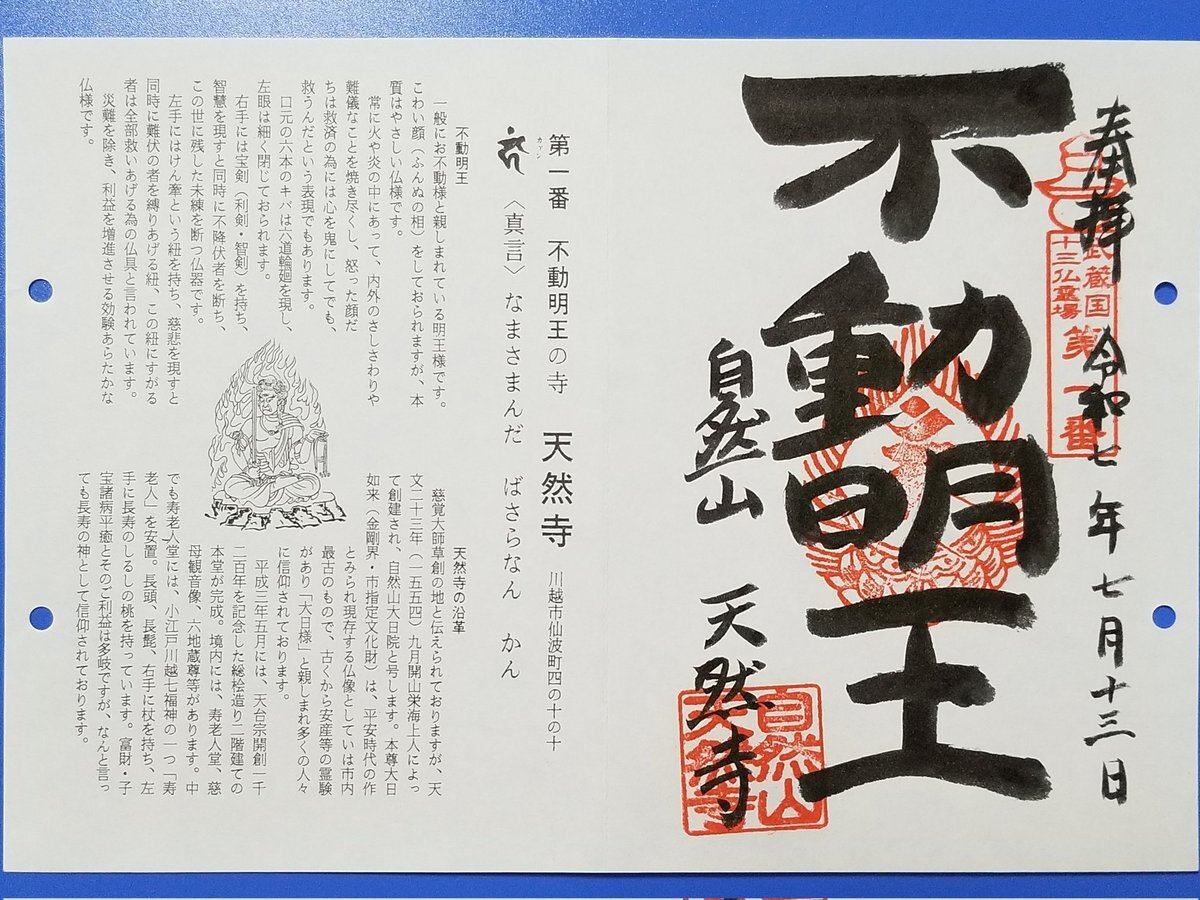 奉拝 令和七年七月十三日
武蔵国
十三仏霊場
第一番
不動明王
自然山 天然寺
自然山
天然寺
第一番 不動明王の寺 天然寺 川越市仙波町四の十の十
カァン
〈真言〉なまさまんだ ばさらなん かん
不動明王
一般にお不動様と親しまれている明王様です。
こわい顔(ふんぬの相)をしておられますが、本
質はやさしい仏様です。
常に火や炎の中にあって、内外のさしさわりや
難儀なことを焼き尽くし、怒った顔だ
ちは救済の為には心を鬼にしてでも、
救うんだという表現でもあります。
口元の六本のキバは六道輪廻を現し、
左眼は細く閉じておられます。
右手には宝剣(利剣・智剣)を持ち、
智慧を現すと同時に不降伏者を断ち、
この世に残した未練を断つ仏器です。
左手にはけん牽という紐を持ち、慈悲を現すと
同時に難伏の者を縛りあげる紐、この紐にすがる
者は全部救いあげる為の仏具と言われています。
災難を除き、利益を増進させる効験あらたかな
仏様です。
天然寺の沿革
慈覚大師草創の地と伝えられておりますが、天
文二十三年(一五五四)九月開山栄海上人によっ
て創建され、自然山大日院と号します。本尊大日
如来(金剛界・市指定文化財)は、平安時代の作
とみられ現存する仏像としていは市内
最古のもので、古くから安産等の霊験
があり「大日様」と親しまれ多くの人々
に信仰されております。
平成三年五月には、天台宗開創一千
二百年を記念した総桧造り二階建ての
本堂が完成。境内には、寿老人堂、慈
母観音像、六地蔵尊等があります。中
でも寿老人堂には、小江戸川越七福神の一つ「寿
老人」を安置。長頭、長髭、右手に杖を持ち、左
手に長寿のしるしの桃を持っています。富財・子
宝諸病平癒とそのご利益は多岐ですが、なんと言っ
ても長寿の神として信仰されております。